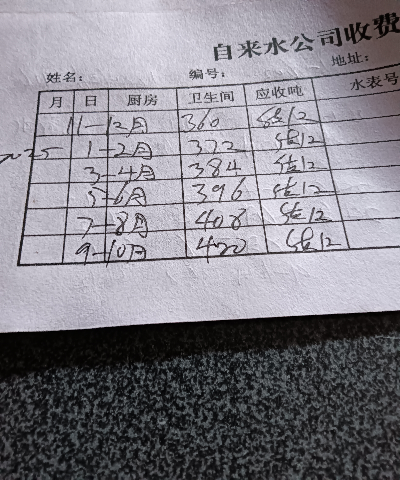 自来水公司收费
姓名: 编号: 地址:
月 日 厨房 卫生间 应收吨 水表号
11-12月 360 12
2025 1-2月 372 12
3-4月 384 12
5-6月 396 12
7-8月 408 12
9-10月 420 12